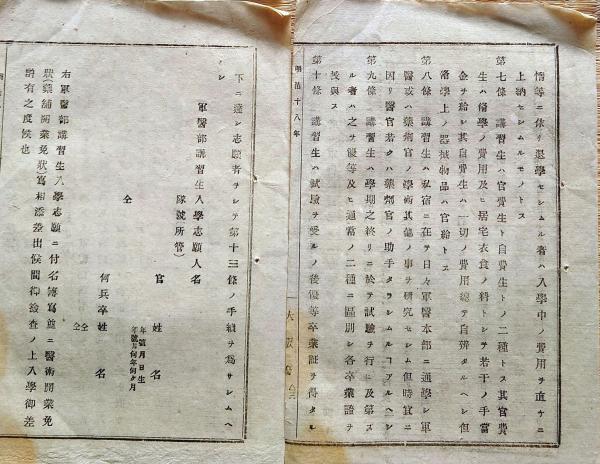 情等ニ依リ退學セシムル者ハ入學中ノ費用ヲ直ケニ
上納セシムルモノトス
第七條 講習生ハ官費生ト自費生トノ二種トス其官費
生ハ脩學ノ費用及ヒ居宅衣食ノ料トシテ若干ノ手當
金ヲ給シ其自費生ハ一切ノ費用總テ自辨タルヘシ但
脩學上ノ器械物品ハ官給トス
第八條 講習生ハ私宿ニ在テ日々軍醫本部ニ通學シ軍
醫或ハ藥劑官ノ學術其他ノ事ヲ研究セシム但時宜ニ
因リ醫官若クハ藥劑官ノ助手タラシムルコアルヘシ
第九條 講習生ハ學期之終リニ於テ試驗ヲ行ニ及第ス
ル者ハ之ヲ優等及ヒ通常ノ二種ニ區別シ各卒業證ヲ
授與ス
第十條 講習生ハ試驗ヲ受ルノ後優等卒業証ヲ得タル
明治十八年
大
下ニ達シ志願者ヲシテ第十三條ノ手續ヲ為サシムヘ
シ
軍醫部講習生入學志願人名
隊號(所管)
官 姓名
年號月日生
年號何年何ヶ月
仝
何兵卒姓名
仝
仝
右軍醫部講習生入學志願ニ付名簿寫並ニ醫術開業免
狀(藥舖開業免狀)寫相添差出候間御檢査ノ上入學御差
許有之度候也